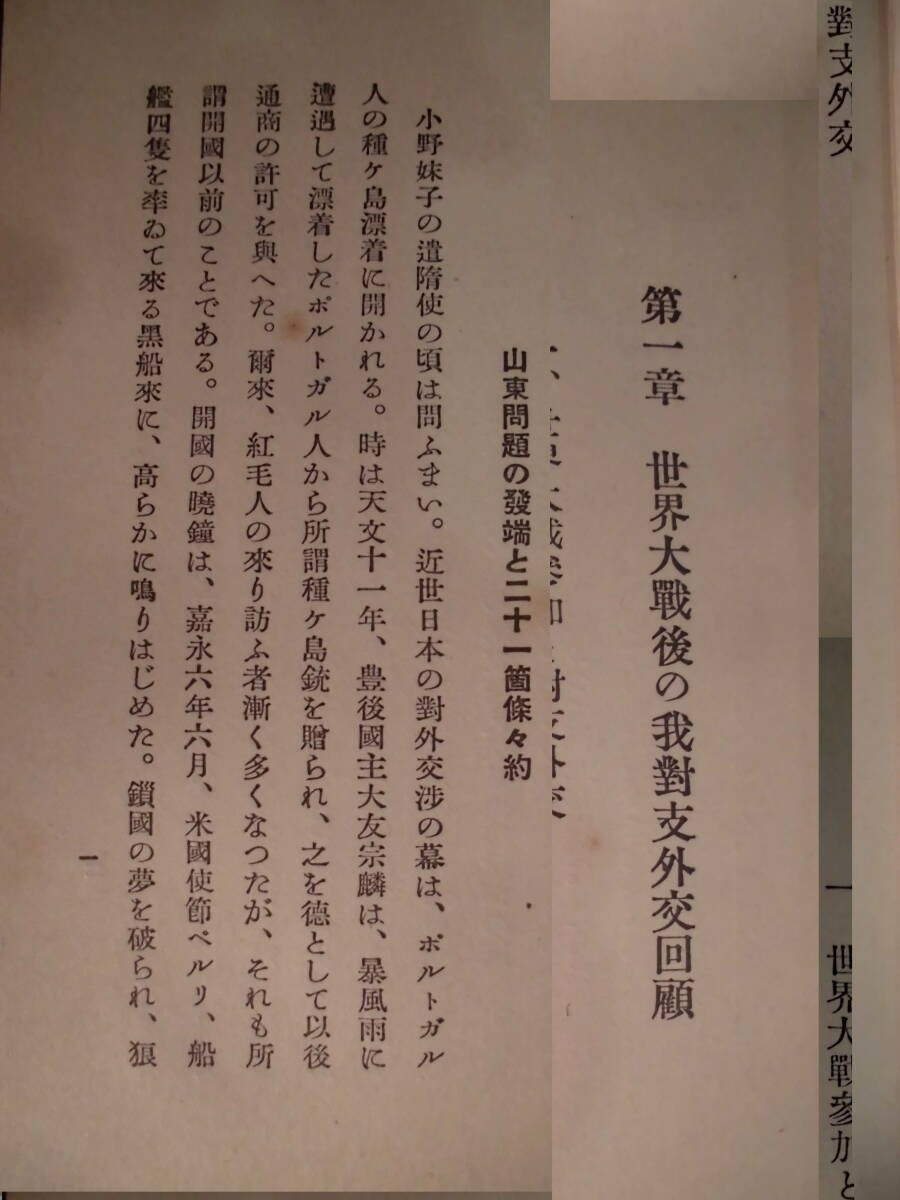 對支外交
一 世界大戰參加と
第一章 世界大戰後の我對支外交回顧
山東問題の發端と二十一箇條々約
小野妹子の遣隋使の頃は問ふまい。近世日本の對外交涉の幕は、ポルトガル
人の種ケ島漂着に開かれる。時は天文十一年、豊後國主大友宗麟は、暴風雨に
遭遇して漂着したポルトガル人から所謂種ケ島銃を贈られ、之を德として以後
通商の許可を與へた。爾來、紅毛人の來り訪ふ者漸く多くなつたが、それも所
謂開國以前のことである。開國の曉鐘は、嘉永六年六月、米國使節ペルリ、船
艦四隻を率ゐて來る黑船來に、高らかに鳴りはじめた。鎖國の夢を破られ、狼
一